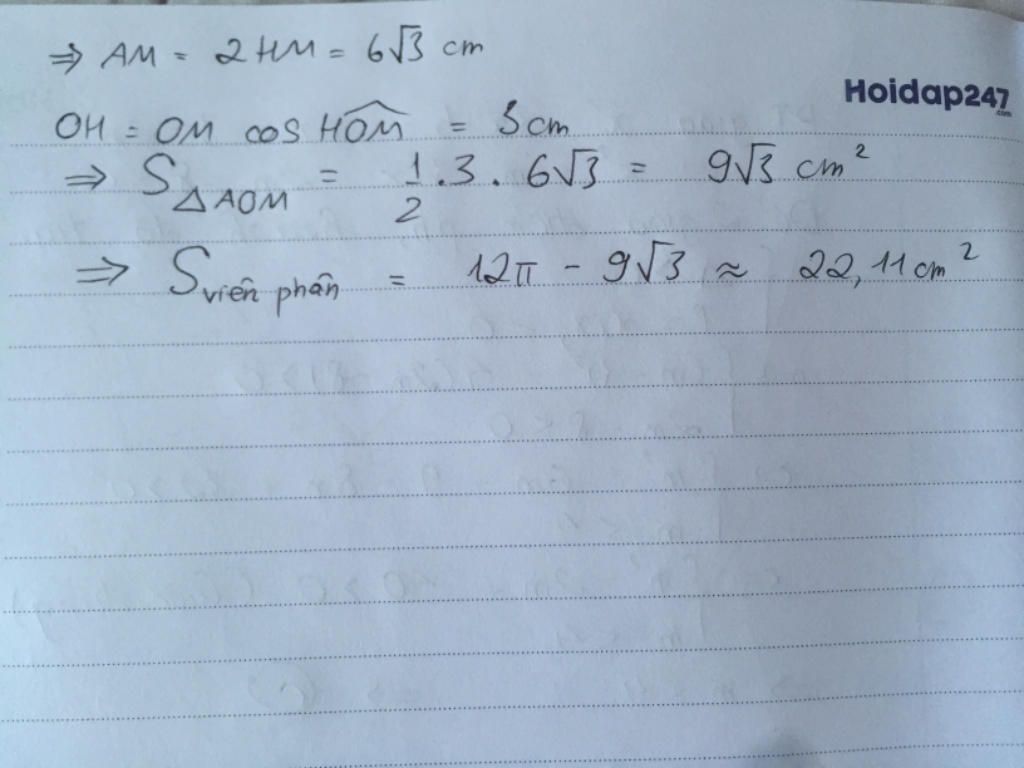 ⇒ AM = 2HM = 6√3 cm
Hoidap247.com
OH = OM cos HOM = 3cm
⇒ S△AOM = 1/2 . 3 . 6√3 = 9√3 cm²
⇒ Sviên phân = 12π - 9√3 ≈ 22,11 cm²